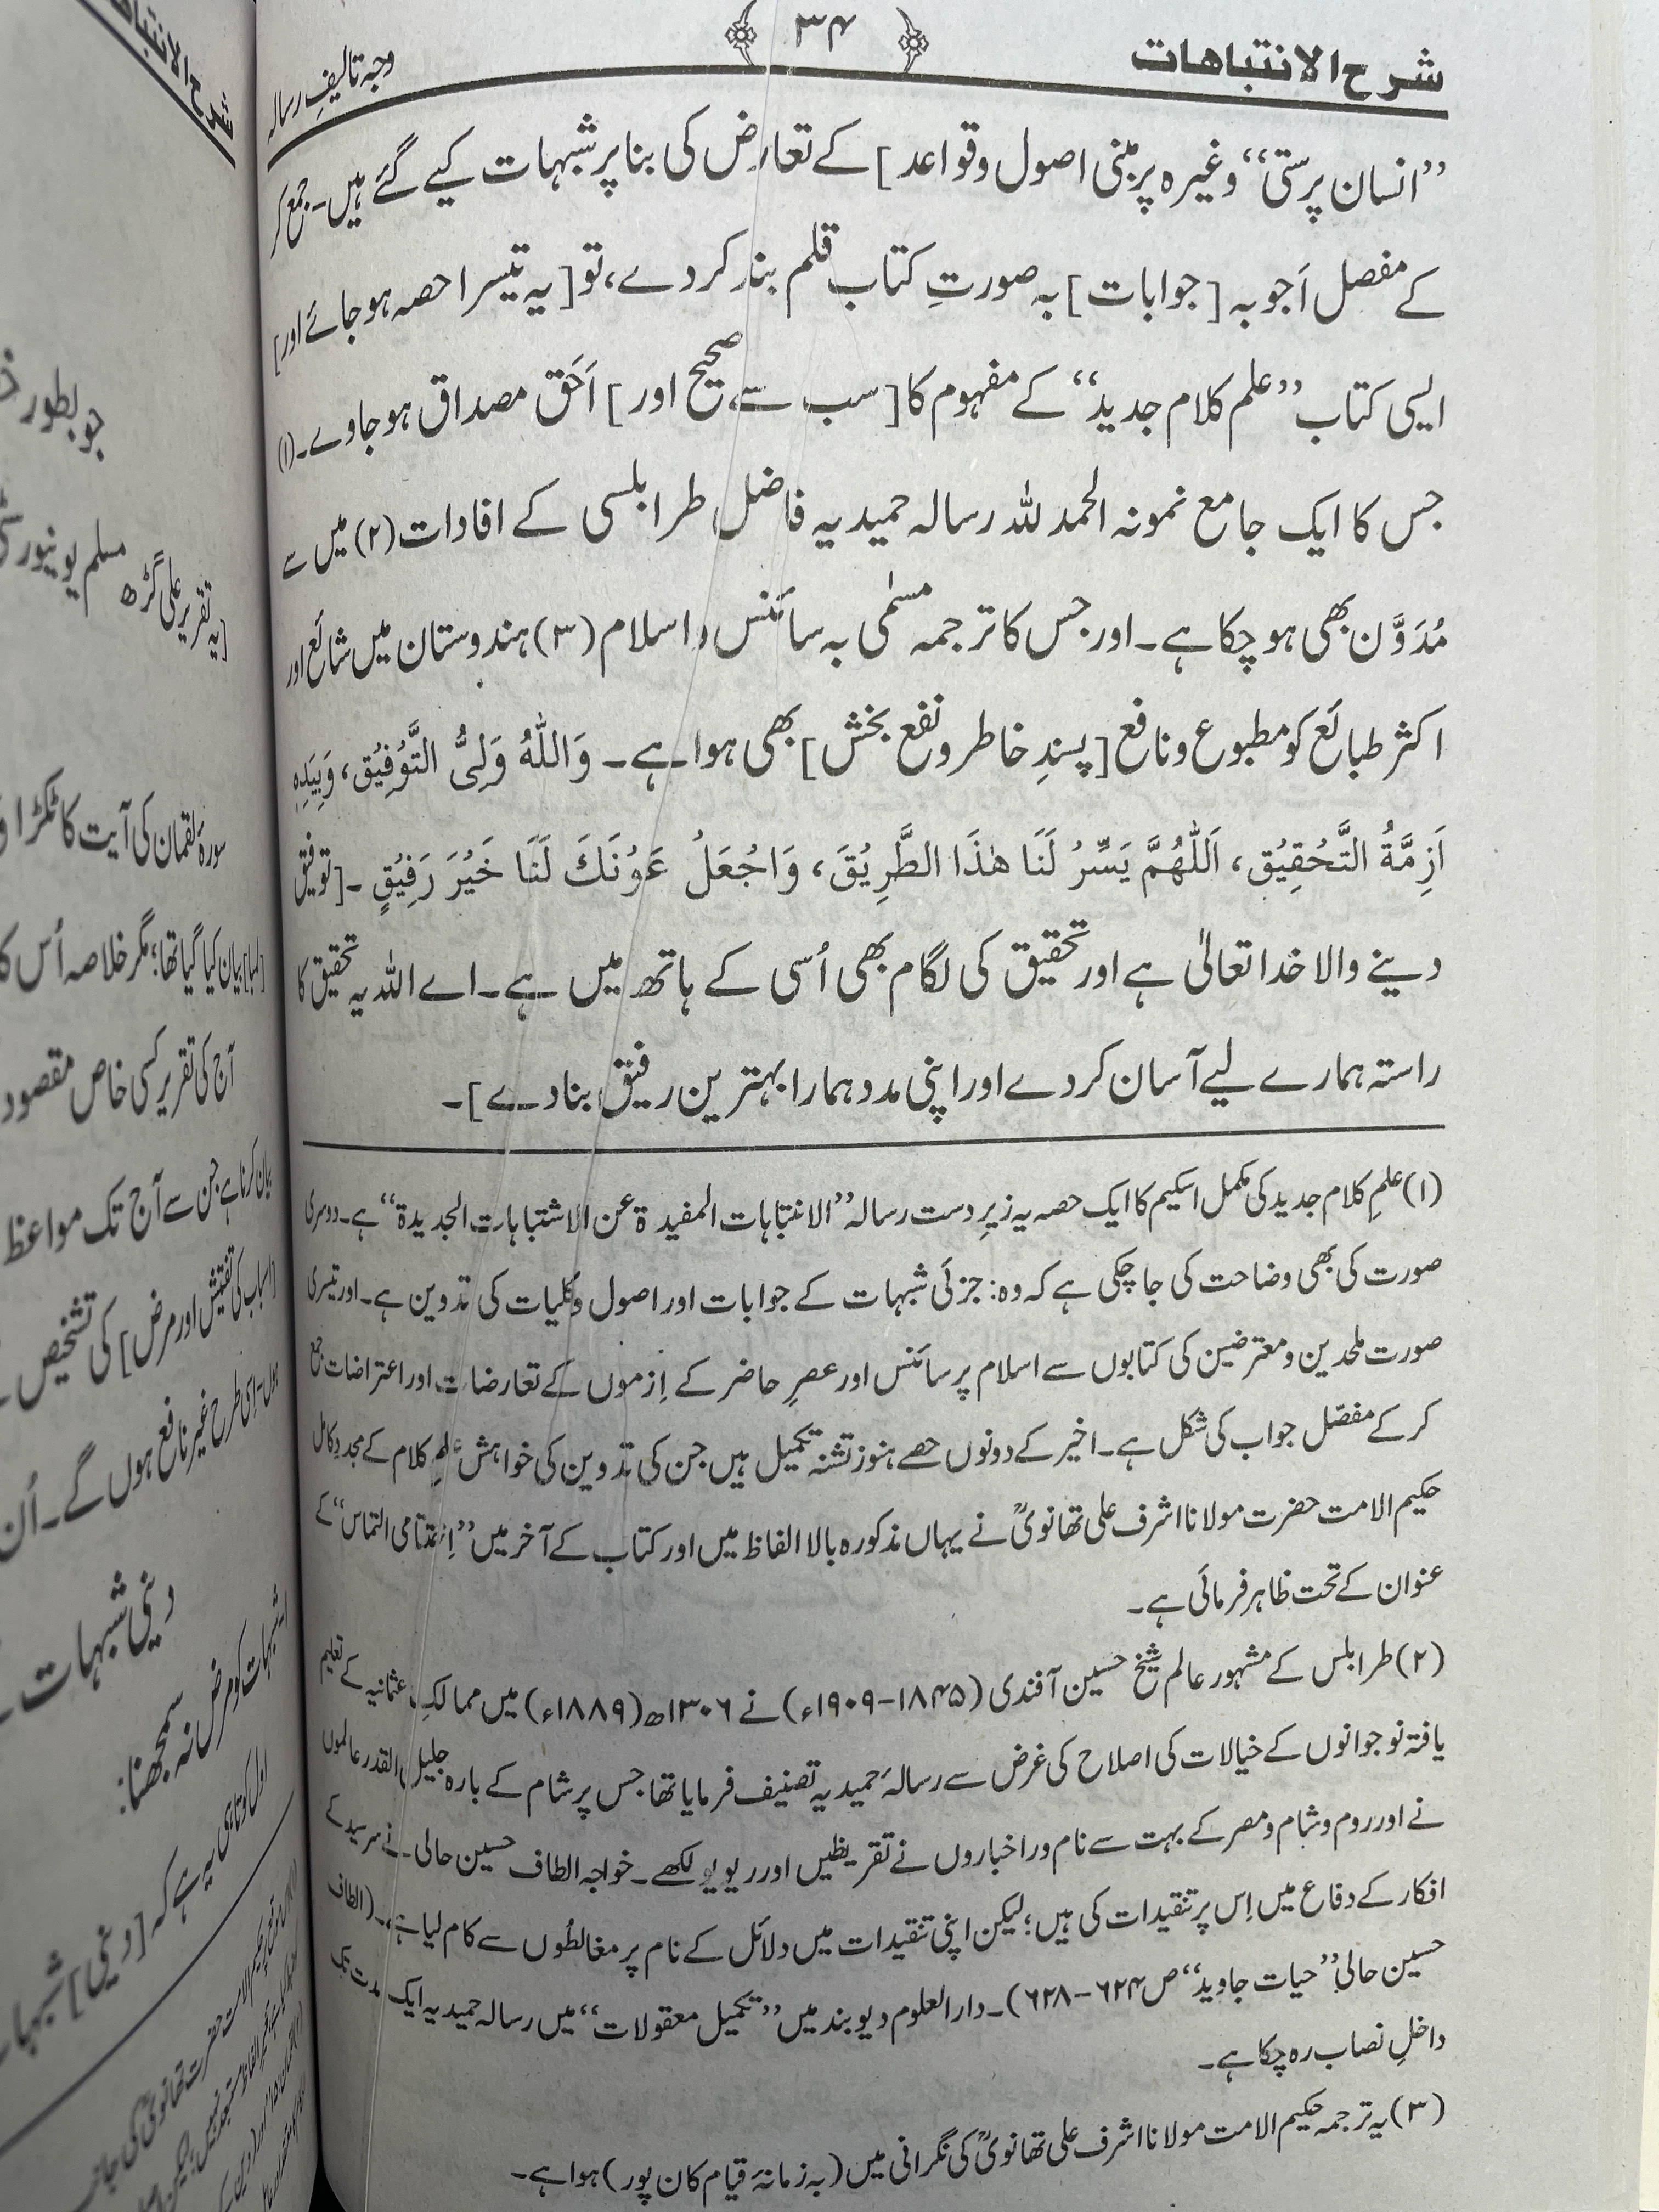 شرح الانتباهات
۳۴
وجہ تالیفِ رسالہ
’’انسان پرستی‘‘ وغیرہ پر مبنی اصول و قواعد] کے تعارض کی بنا پر شبہات کیے گئے ہیں۔ جمع کر
کے مفصل اَجوبہ [جوابات] بہ صورتِ کتاب قلم بند کر دے، تو [یہ تیسرا حصہ ہو جائے اور]
ایسی کتاب ’’علم کلام جدید‘‘ کے مفہوم کا [سب سے صحیح اور] اَحَقّ مصداق ہو جاوے۔(۱)
جس کا ایک جامع نمونہ الحمد للہ رسالہ حمیدیہ فاضل طرابلسی کے افادات (۲) میں سے
مُدَوَّن بھی ہو چکا ہے۔ اور جس کا ترجمہ مسمٰی بہ سائنس و اسلام (۳) ہندوستان میں شائع اور
اکثر طبائع کو مطبوع و نافع [پسندِ خاطر و نفع بخش] بھی ہوا ہے۔ وَاللّٰهُ وَلِىُّ التَّوْفِيْقِ، وَبِيَدِهٖ
اَزِمَّةُ التَّحْقِيْقِ، اَللّٰهُمَّ يَسِّرْ لَنَا هٰذَا الطَّرِيْقَ، وَاجْعَلْ عَوْنَكَ لَنَا خَيْرَ رَفِيْقٍ ۔[توفیق
دینے والا خدا تعالیٰ ہے اور تحقیق کی لگام بھی اُسی کے ہاتھ میں ہے۔ اے اللہ یہ تحقیق کا
راستہ ہمارے لیے آسان کر دے اور اپنی مدد ہمارا بہترین رفیق بنا دے]۔
(۱) علمِ کلام جدید کی مکمل اسکیم کا ایک حصہ یہ زیرِ دست رسالہ ’’الانتباہات المفیدۃ عن الاشتباہات الجدیدۃ‘‘ ہے۔ دوسری
صورت کی بھی وضاحت کی جا چکی ہے کہ وہ: جزئی شبہات کے جوابات اور اصول و کلیات کی تدوین ہے۔ اور تیسری
صورت ملحدین و معترضین کی کتابوں سے اسلام پر سائنس اور عصرِ حاضر کے اِزموں کے تعارضات اور اعتراضات جمع
کر کے مفصّل جواب کی شکل ہے۔ اخیر کے دونوں حصے ہنوز تشنۂ تکمیل ہیں جن کی تدوین کی خواہش علمِ کلام کے مجدد کامل
حکیم الامت حضرت مولانا اشرف علی تھانویؒ نے یہاں مذکورہ بالا الفاظ میں اور کتاب کے آخر میں ’’اِختتامی التماس‘‘ کے
عنوان کے تحت ظاہر فرمائی ہے۔
(۲) طرابلس کے مشہور عالم شیخ حسین آفندی (۱۸۴۵-۱۹۰۹ء) نے ۱۳۰۶ھ (۱۸۸۹ء) میں ممالکِ عثمانیہ کے تعلیم
یافتہ نوجوانوں کے خیالات کی اصلاح کی غرض سے رسالۂ حمیدیہ تصنیف فرمایا تھا جس پر شام کے بارہ جلیل القدر عالموں
نے اور روم و شام و مصر کے بہت سے نام ور اخباروں نے تقریظیں اور ریویو لکھے۔ خواجہ الطاف حسین حالی نے سرسید کے
افکار کے دفاع میں اِس پر تنقیدات کی ہیں؛ لیکن اپنی تنقیدات میں دلائل کے نام پر مغالطوں سے کام لیا ہے۔ (الطاف
حسین حالی: ’’حیات جاوید‘‘ ص ۶۲۴-۶۲۸)۔ دارالعلوم دیوبند میں ’’تکمیل معقولات‘‘ میں رسالہ حمیدیہ ایک مدت تک
داخلِ نصاب رہ چکا ہے۔
(۳) یہ ترجمہ حکیم الامت مولانا اشرف علی تھانویؒ کی نگرانی میں (بہ زمانۂ قیام کان پور) ہوا ہے۔
شرح الانتباہات
جو بطور
[یہ تقریر علی گڑھ مسلم یونیورسٹی
سورۂ لقمان کی آیت کا ٹکڑا
بیان کیا گیا تھا؛ مگر خلاصہ اُس کا
آج کی تقریر کسی خاص مقصود
بیان کرنا ہے جن سے آج تک مواعظ
[اسباب کی تفتیش اور مرض] کی تشخیص
ہوں۔ اِسی طرح غیر نافع ہوں گے۔ اُن
دینی شبہات
شبہات کو مرض نہ سمجھنا:
اول کوتاہی یہ ہے کہ [دینی] شبہات